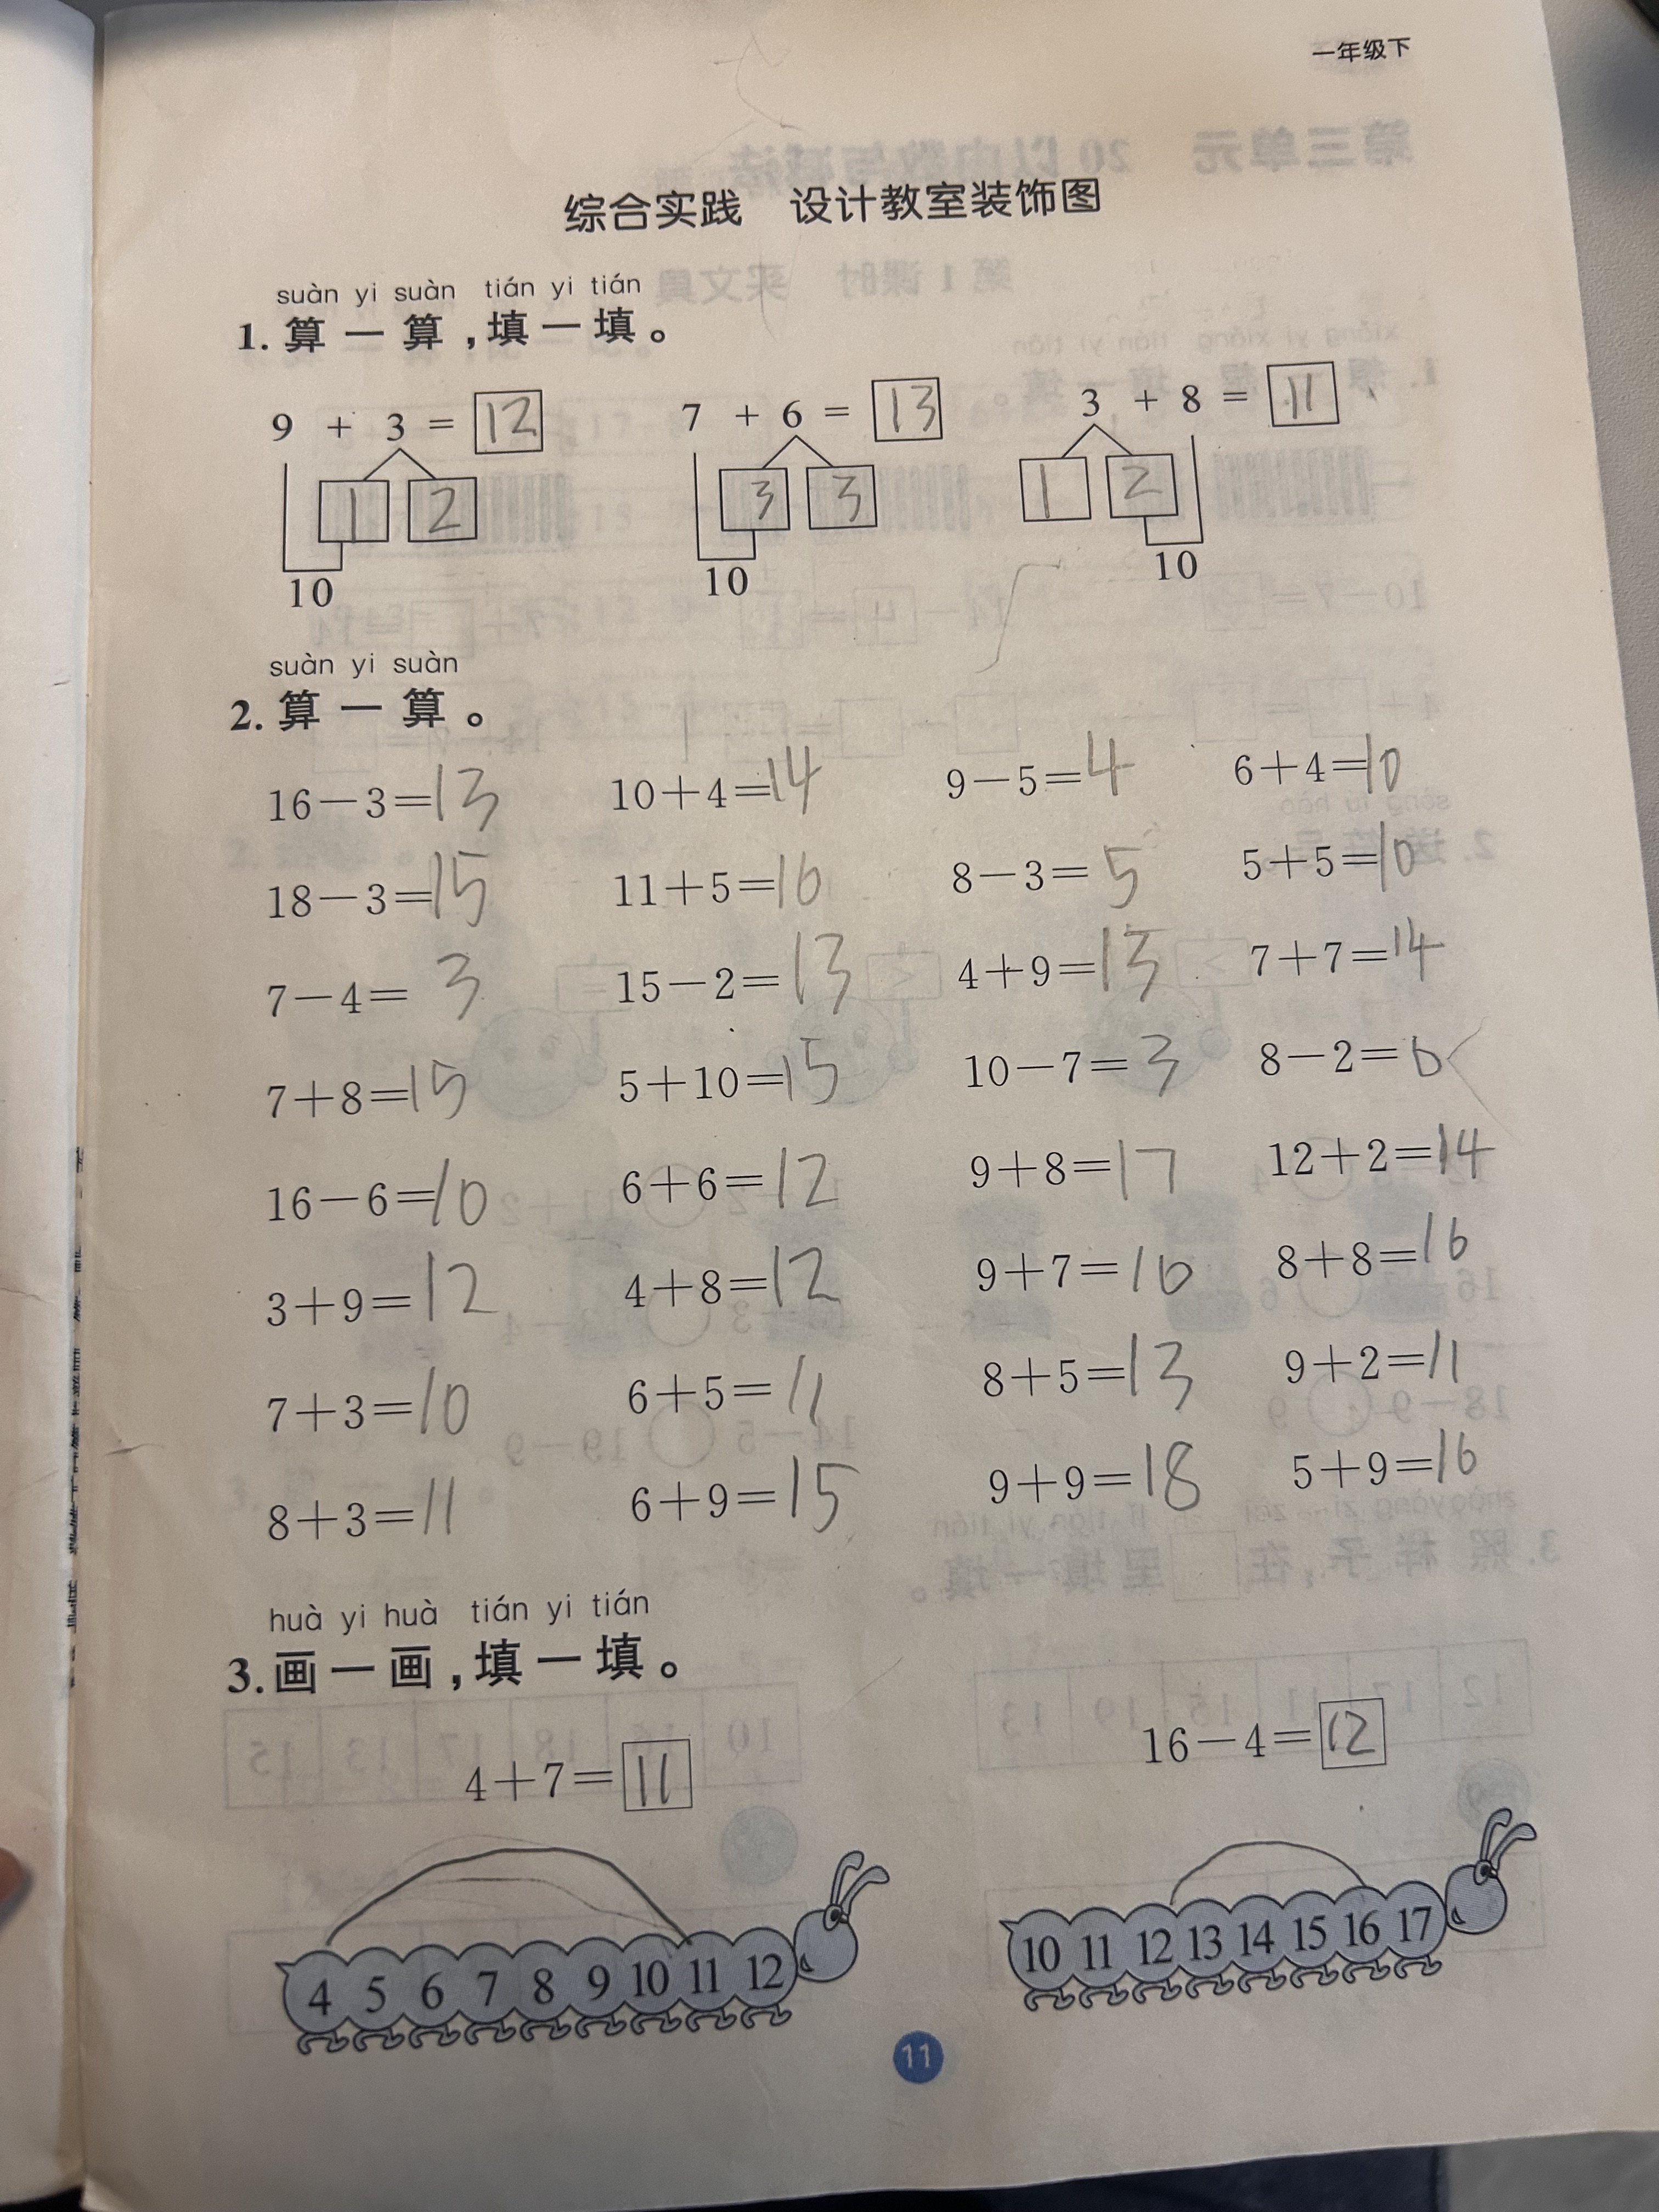 一年级下
综合实践 设计教室装饰图
suàn yi suàn tián yi tián
1. 算一算，填一填。
9 + 3 = 12 7 + 6 = 13 3 + 8 = 11
1 2 3 3 1 2
10 10 10
suàn yi suàn
2. 算一算。
16－3=13 10+4=14 9－5=4 6+4=10
18－3=15 11+5=16 8－3=5 5+5=10
7－4=3 15－2=13 4+9=13 7+7=14
7+8=15 5+10=15 10－7=3 8－2=6
16－6=10 6+6=12 9+8=17 12+2=14
3+9=12 4+8=12 9+7=16 8+8=16
7+3=10 6+5=11 8+5=13 9+2=11
8+3=11 6+9=15 9+9=18 5+9=16
huà yi huà tián yi tián
3. 画一画，填一填。
4+7=11 16－4=12
4 5 6 7 8 9 10 11 12 10 11 12 13 14 15 16 17
11